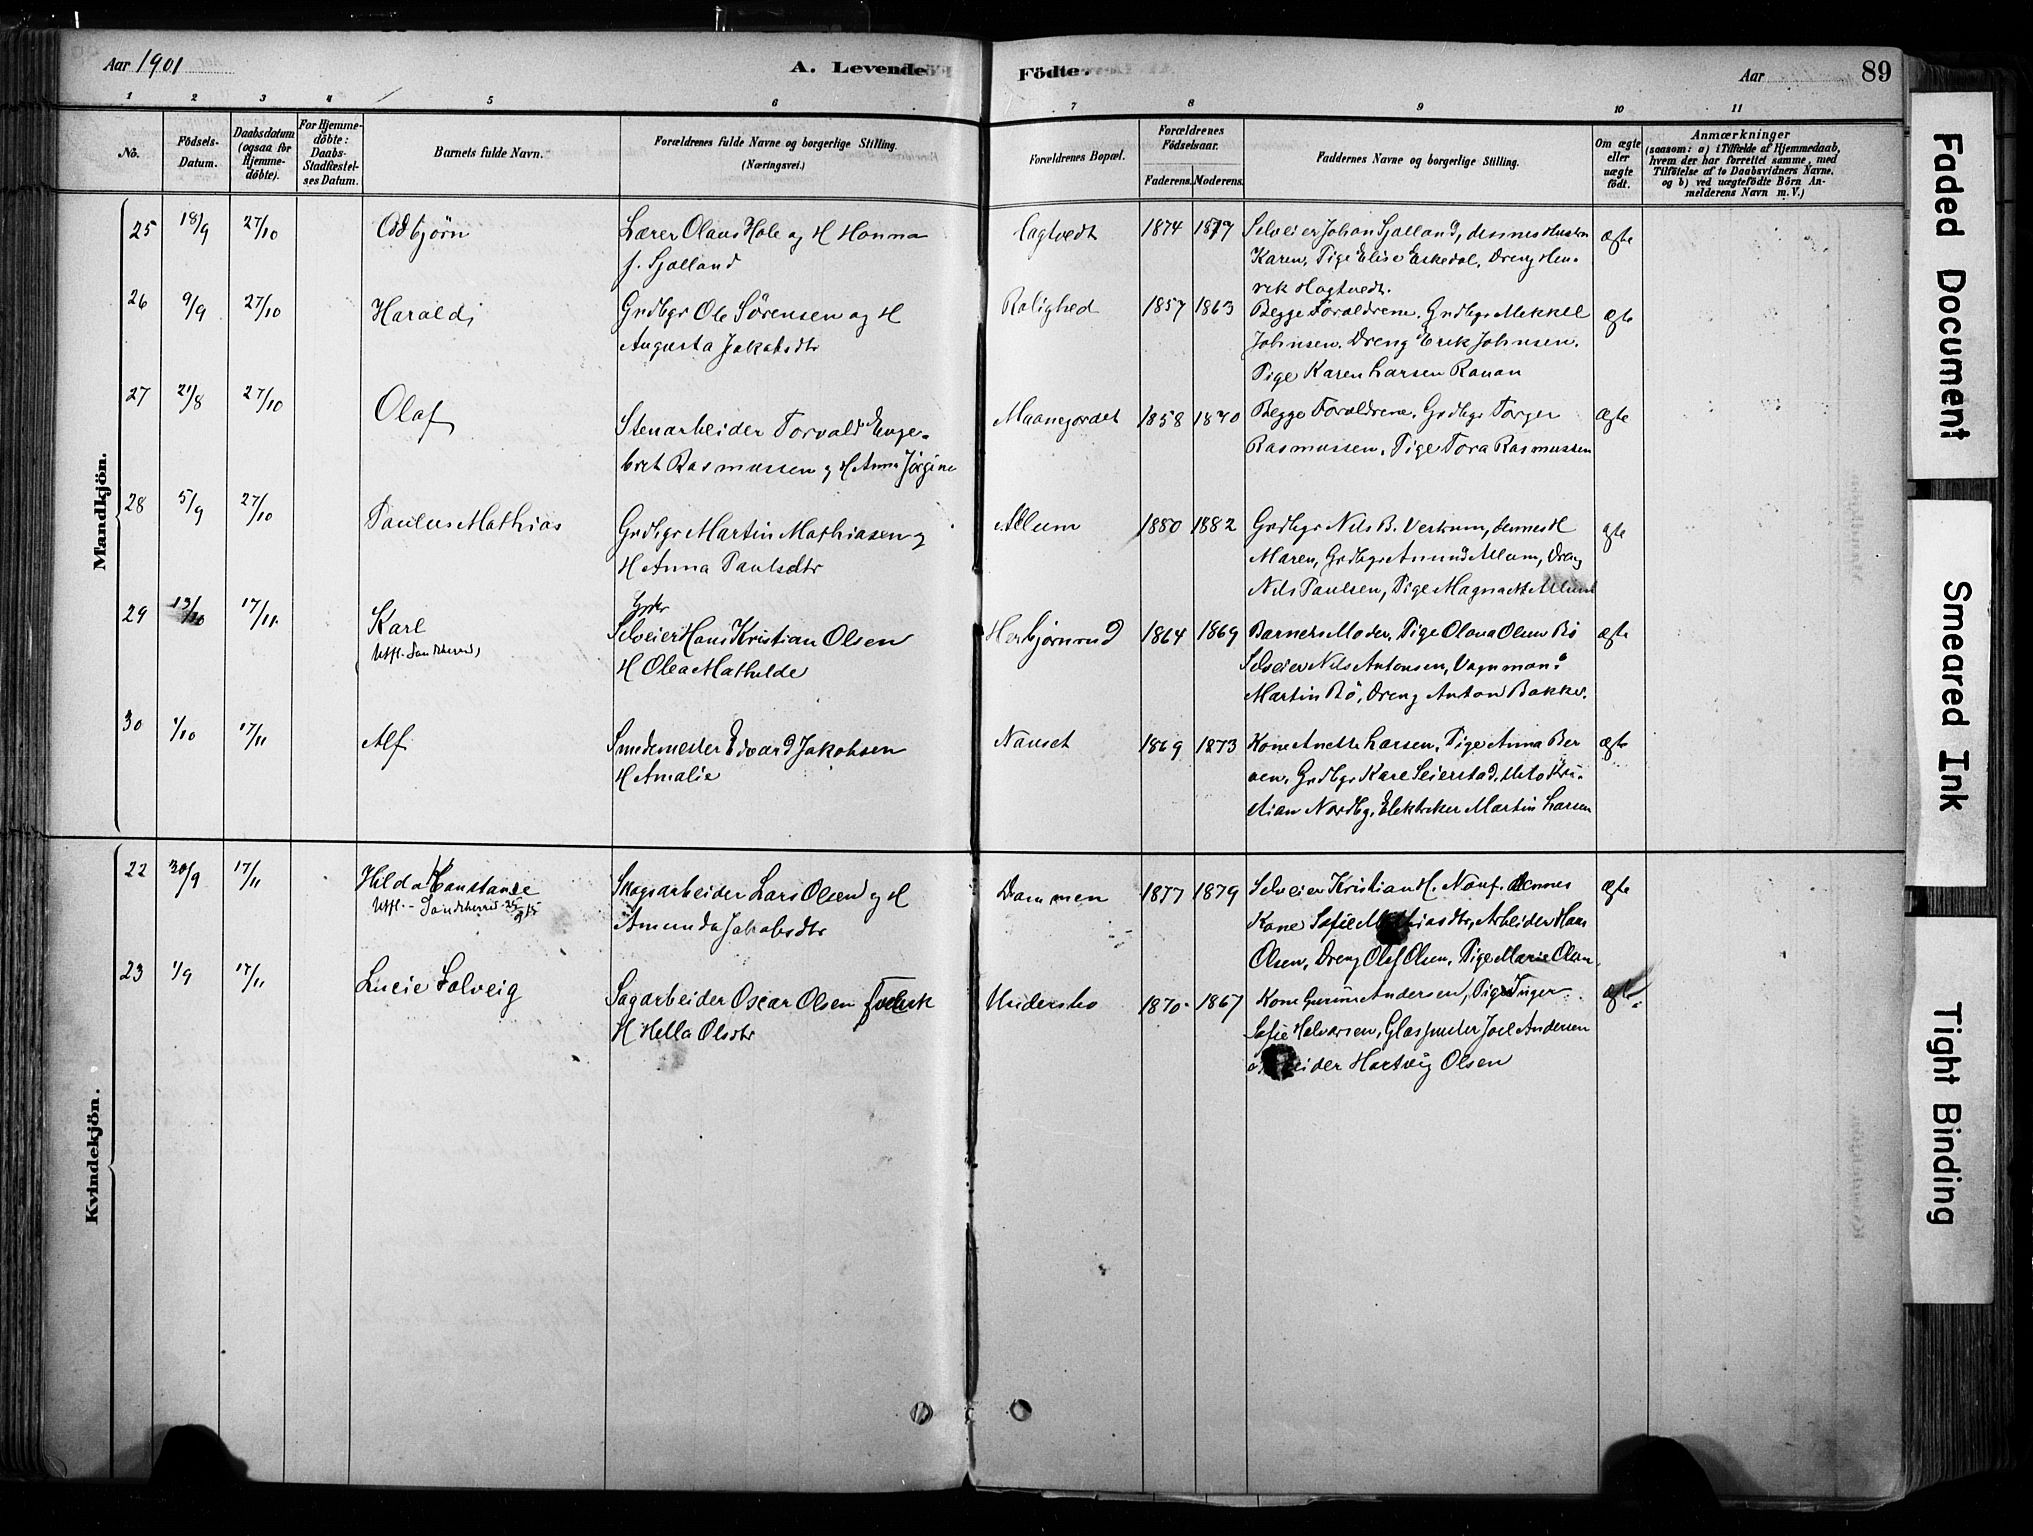 Aar 1901
A. Levende Födte.
Aar
89
1 2 3 4 5 6 7 8 9 10 11
No.
Födsels-
Datum.
Daabsdatum
(ogsaa for
Hjemme-
döbte).
For Hjemme-
döbte:
Daabs-
Stadfæstel-
ses Datum.
Barnets fulde Navn.
Forældrenes fulde Navne og borgerlige Stilling.
(Næringsvei.)
Forældrenes Bopæl.
Forældrenes
Födselsaar.
Faderens. Moderens.
Faddernes Navne og borgerlige Stilling.
Om ægte
eller
uægte
födt.
Anmærkninger
(saasom: a) i Tilfælde af Hjemmedaab,
hvem der har forrettet samme, med
Tilföielse af to Daabsvidners Navne,
og b) ved uægtefödte Börn An-
melderens Navn m. V.)
Mandkjön.
25 18/9 27/10 Oddbjörn
Lærer Olaus Hole og H Hanna
f. Sjølland
Hagtvedt 1874 1879
Selveier Johan Sjølland, dennes Hustru
Karen, Pige Elise Eskedal, Dreng Hen-
rik Hagtvedt.
ægte
26 9/9 27/10 Harald
Grdbgr Ole Sörensen og H
Augusta Jakobsdtr
Rolighed 1857 1863
Begge Forældrene, Grdbgr Mekkel
Johnsen. Dreng Erik Johnsen.
Pige Karen Larsen Ranan
ægte
27 21/8 27/10 Olaf
Stenarbeider Torvald Enge-
bret Rasmussen og H Anna Jörgine
Maanejordet 1858
Begge Forældrene, Grdbgr Torger
Rasmussen, Pige Tora Rasmussen
ægte
28 5/9 27/10 Paulus Mathias
Grdbgr Martin Mathiasen og
H Anna Paulsdtr
Allum 1880 1882
Grdbgr Nils B. Verkum, dennes H
Maren, Grdbgr Amund Allum, Dreng
Nils Paulsen, Pige Magna Allum
ægte
29 13/10 17/11 Karl
Utfl. Sandeherred
Selveier Hans Kristian Olsen
H Olea Mathilde
Herbjörnrud 1864 1869
Barnets Moder, Pige Olava Olsen Bö
Selveier Nils Antonsen, Vognmand
Martin Bö, Dreng Anton Bakke.
ægte
30 1/10 17/11 Alf
Smedemester Edvard Jakobsen
H Amalie
Nanset 1869 1873
Kone Anette Larsen, Pige Anna Ber
sen, Grdbgr Kare Seierstad, Kri-
stian Nordby, Elektriker Martin Larsen
ægte
Kvindekjön.
22 30/9 17/11 Hilda Constance
Utfl. - Sandeherred
Skogsarbeider Lars Olsen og H
Amunda Jakobsdtr
Dammen 1877 1879
Selveier Kristian H. Nauf. dennes
Kone Sofie Mathiasdtr, Arbeider Hans
Olsen, Dreng Olaf Olsen, Pige Marie Olsen
ægte
23 1/9 17/11 Lucie Solveig
Sagarbeider Oscar Olsen
H Hella Olsdtr
Undersbo 1870 1867
Kone Gurine Andersen, Pige Inger
Sofie Halvorsen, Glaspuster Joel Andersen
arbeider Hartvig Olsen
ægte
Faded Document
Smeared Ink
Tight Binding